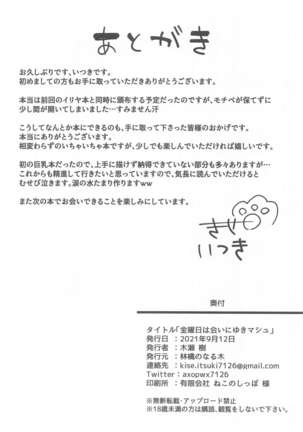 あとがき
お久しぶりです、いつきです。
初めましての方もお手に取っていただきありがとうございます。
本当は前回のイリヤ本と同時に頒布する予定だったのですが、モチベが保てずに
少し間が開いてしまいました…すみません汗
こうしてなんとか本にできるのも、手に取って下さった皆様のおかげです。
本当にありがとうございます。
相変わらずのいちゃいちゃ本ですが、少しでも楽しんでいただければ嬉しいです。
初の巨乳本だったので、上手に描けず納得できていない部分も多々ありますが…
これからも精進して行きたいと思っていますので、気長に読んでいただけると
むせび泣きます。涙の水たまり作りますww
また次の本でお会いできることを楽しみにしています。
きせ
いつき
奥付
タイトル「金曜日は会いにゆきマシュ」
発行日：2021年9月12日
発行者：木瀬 樹
発行元：林檎のなる木
連絡先：kise.itsuki7126@gmail.com
Twitter：axopwx7126
印刷所：有限会社 ねこのしっぽ 様
※無断転載・アップロード禁止
※18歳未満の方は購読、観覧をしないで下さい。